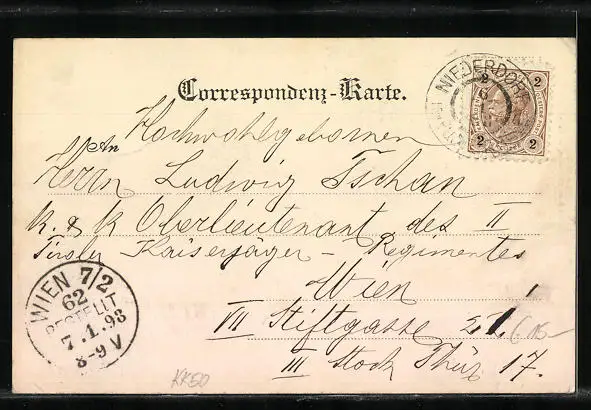 Correspondenz-Karte.
NIEDERDORF
2 2
2 2
Hochwohlgebornen
An
Herrn Ludwig Tschan
k. & k Oberlieutenant des II
Tiroler Kaiserjäger - Regimentes
Wien
VII Stiftgasse 21
III Stock Thür 17.
WIEN 7/2
62
BESTELLT
7.1.98
8-9 V
KK50